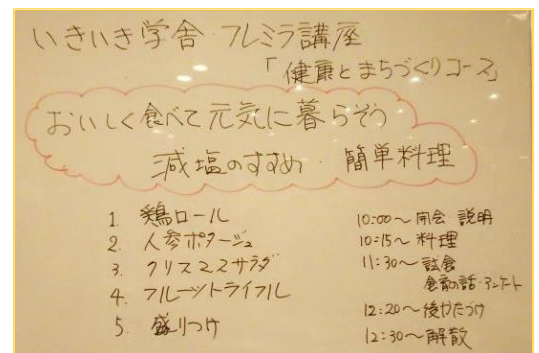 いきいき学舎・フレミラ講座
「健康とまちづくりコース」
おいしく食べて元気に暮らそう
減塩のすすめ 簡単料理
1. 鶏ロール
2. 人参ポタージュ
3. クリスマスサラダ
4. フルーツトライフル
5. 盛りつけ
10:00～開会・説明
10:15～料理
11:30～試食
食育の話・アンケート
12:20～後かたづけ
12:30～解散